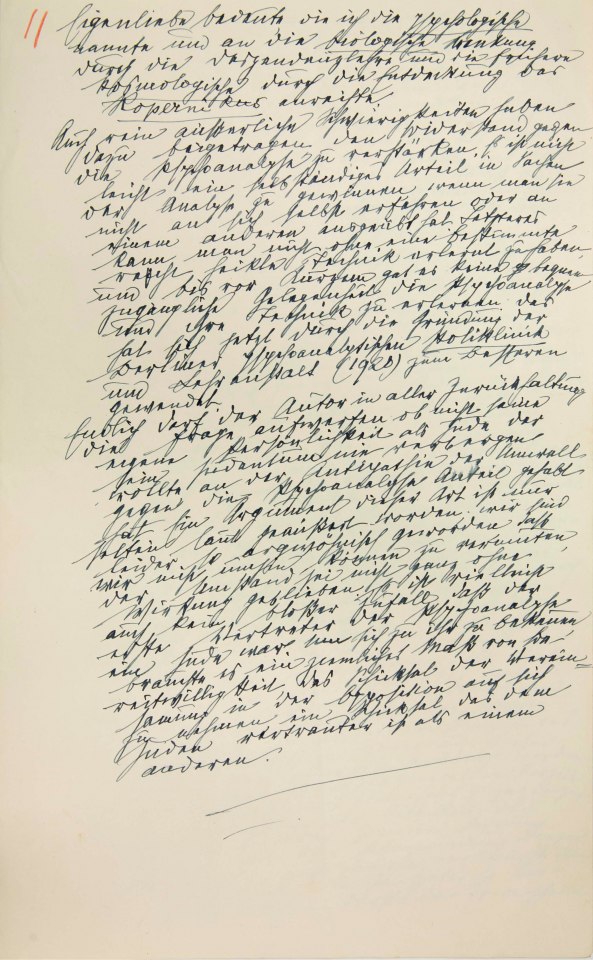 11
Eigenliebe bedeute die ich die psychologische
nannte und an die biologische Kränkung
durch die Deszendenzlehre und die frühere
kosmologische durch die Entdeckung des
Kopernikus anreihte.
Auch rein äußerliche Schwierigkeiten haben
dazu beigetragen den Widerstand gegen
die Psychoanalyse zu verstärken. Es ist nicht
leicht ein selbständiges Urteil in Sachen
der Analyse zu gewinnen wenn man sie
nicht an sich selbst erfahren oder an
einem anderen ausgeübt hat. Letzteres
kann man nicht ohne eine bestimmte
recht heikle Technik erlernt zu haben,
und bis vor Kurzem gab es keine bequem
zugängliche Gelegenheit die Psychoanalyse
und ihre Technik zu erlernen. das
hat sich jetzt durch die Gründung der
Berliner psychoanalytischen Poliklinik
und Lehranstalt (1920) zum Besseren
gewendet.
Endlich darf der Autor in aller Zurückhaltung
die Frage aufwerfen ob nicht seine
eigene Persönlichkeit als Jude der
sein Judentum nie verbergen
wollte an der Antipathie der Umwelt
gegen die Psychoanalyse Anteil gehabt
hat. Ein Argument dieser Art ist nur
selten laut geäußert worden. wir sind
leider so argwöhnisch geworden daß
wir nicht umhin können zu vermuten,
der Umstand sei nicht ganz ohne
Wirkung geblieben. Es ist vielleicht
auch kein bloßer Zufall daß der
erste Vertreter der Psychoanalyse
ein Jude war. Um sich zu ihr zu bekennen
brauchte es ein ziemliches Maß von Be-
reitwilligkeit das Schicksal der Verein-
samung in der Opposition auf sich
zu nehmen ein Schicksal das dem
Juden vertrauter ist als einem
anderen.